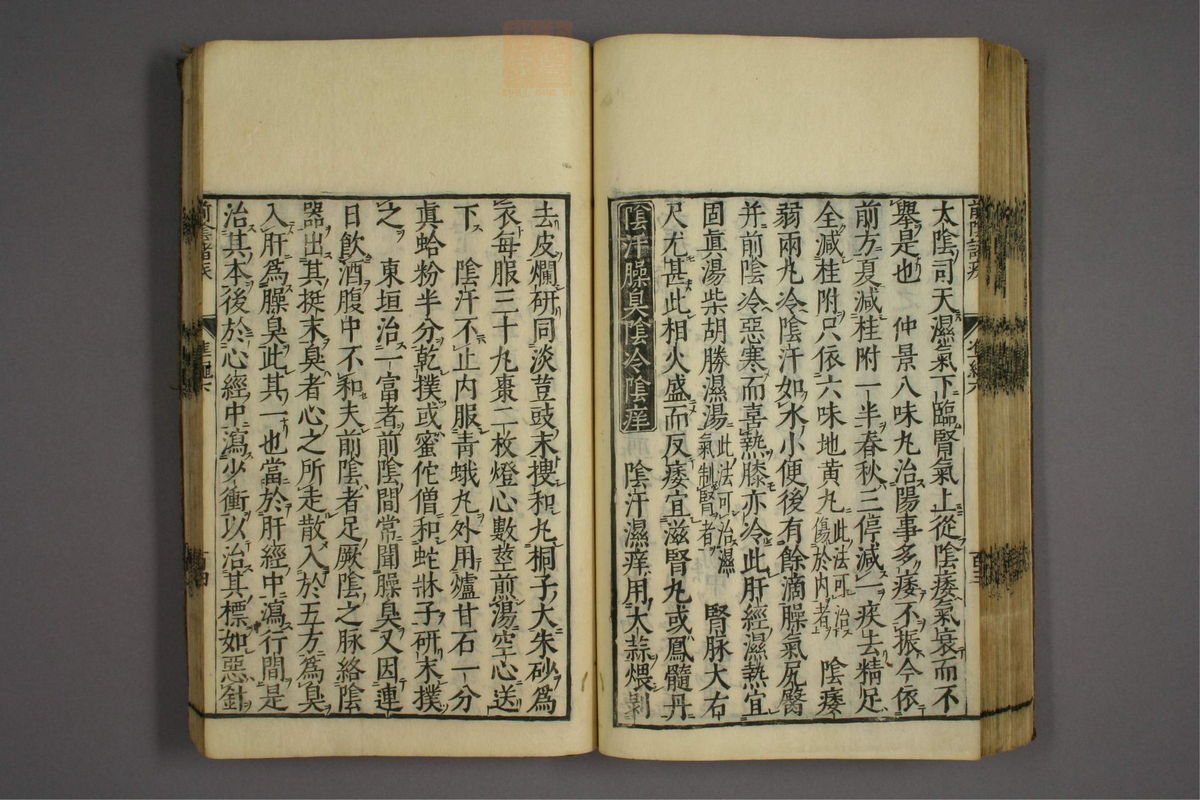 太陰司天濕氣下臨腎氣上從陰痿氣衰而不
舉是也　仲景八味丸治陽事多痿不振今依
前方夏減桂附一半春秋三停減一疾去精足
全減桂附只依六味地黄丸此法可治傷於内者　陰痿
弱兩丸冷陰汗如水小便後有餘滴臊氣尻臀
并前陰冷惡寒而喜熱膝亦冷此肝經濕熱宜
固眞湯柴胡勝濕湯此法可治濕氣制腎者　腎脉大右
尺尤甚此相火盛而反痿宜滋腎丸或鳳髓丹
陰汗臊臭陰冷陰痒　陰汗濕痒用大蒜煨剝
去皮爛研同淡荳豉末搜和丸桐子大朱砂爲
衣每服三十丸棗二枚燈心數莖煎湯空心送
下　陰汗不止内服青蛾丸外用爐甘石一分
眞蛤粉半分乾撲或蜜佗僧和蛇牀子研末撲
之　東垣治一富者前陰間常聞臊臭又因連
日飲酒腹中不和夫前陰者足厥陰之脉絡陰
器出其挺末臭者心之所走散入於五方爲臭
入肝爲臊臭此其一也當於肝經中瀉行間是
治其本後於心經中瀉少衝以治其標如惡針